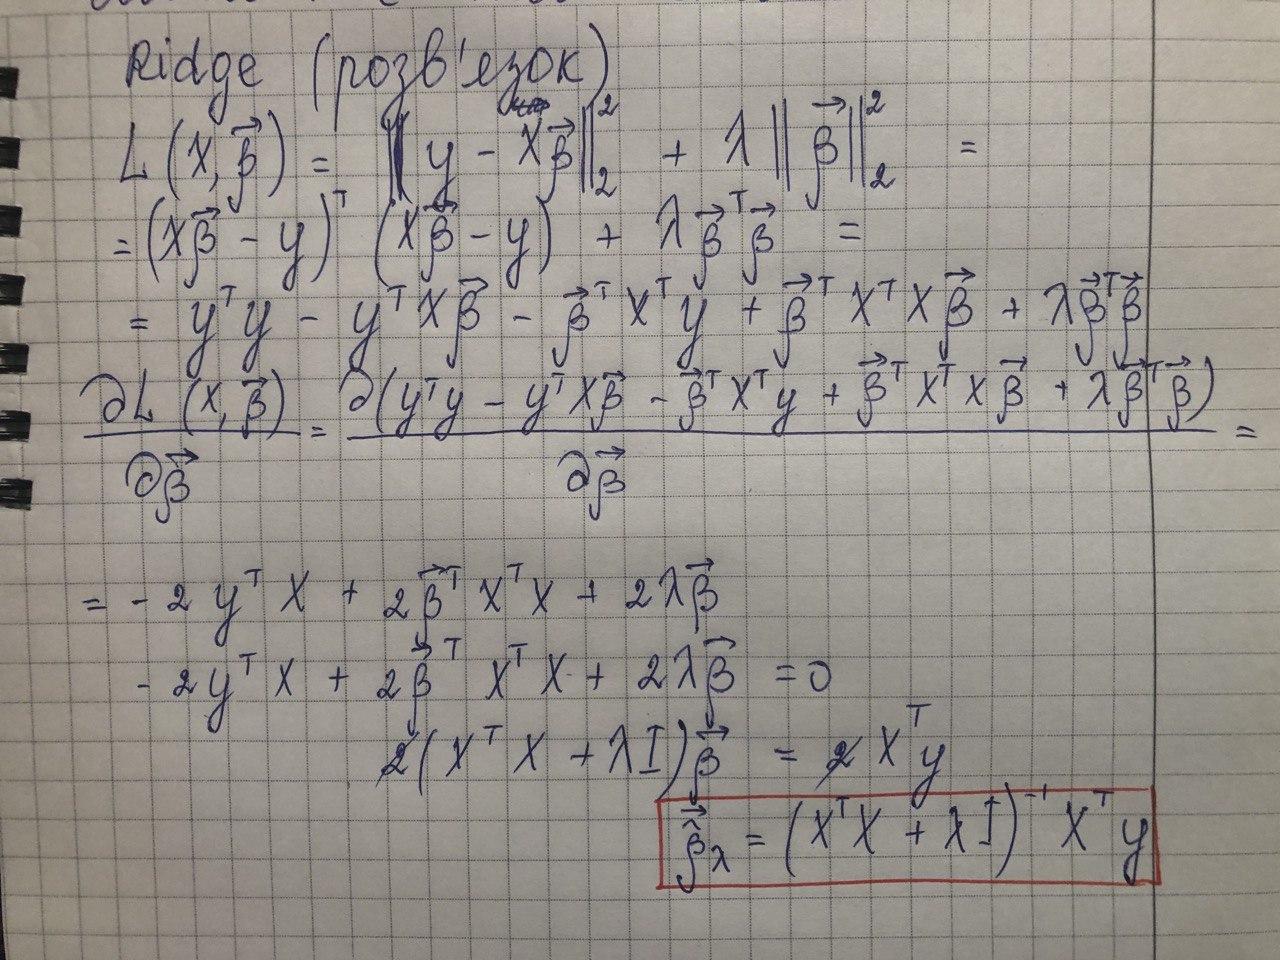 Ridge (розв'язок)
L(X, β⃗) = ‖y - Xβ⃗‖₂² + λ‖β⃗‖₂² =
= (Xβ⃗ - y)ᵀ (Xβ⃗ - y) + λβ⃗ᵀβ⃗ =
= yᵀy - yᵀXβ⃗ - β⃗ᵀXᵀy + β⃗ᵀXᵀXβ⃗ + λβ⃗ᵀβ⃗
∂L(X, β⃗)/∂β⃗ = ∂(yᵀy - yᵀXβ⃗ - β⃗ᵀXᵀy + β⃗ᵀXᵀXβ⃗ + λβ⃗ᵀβ⃗)/∂β⃗ =
= -2yᵀX + 2β⃗ᵀXᵀX + 2λβ⃗
-2yᵀX + 2β⃗ᵀXᵀX + 2λβ⃗ = 0
2(XᵀX + λI)β⃗ = 2Xᵀy
β̂⃗λ = (XᵀX + λI)⁻¹Xᵀy